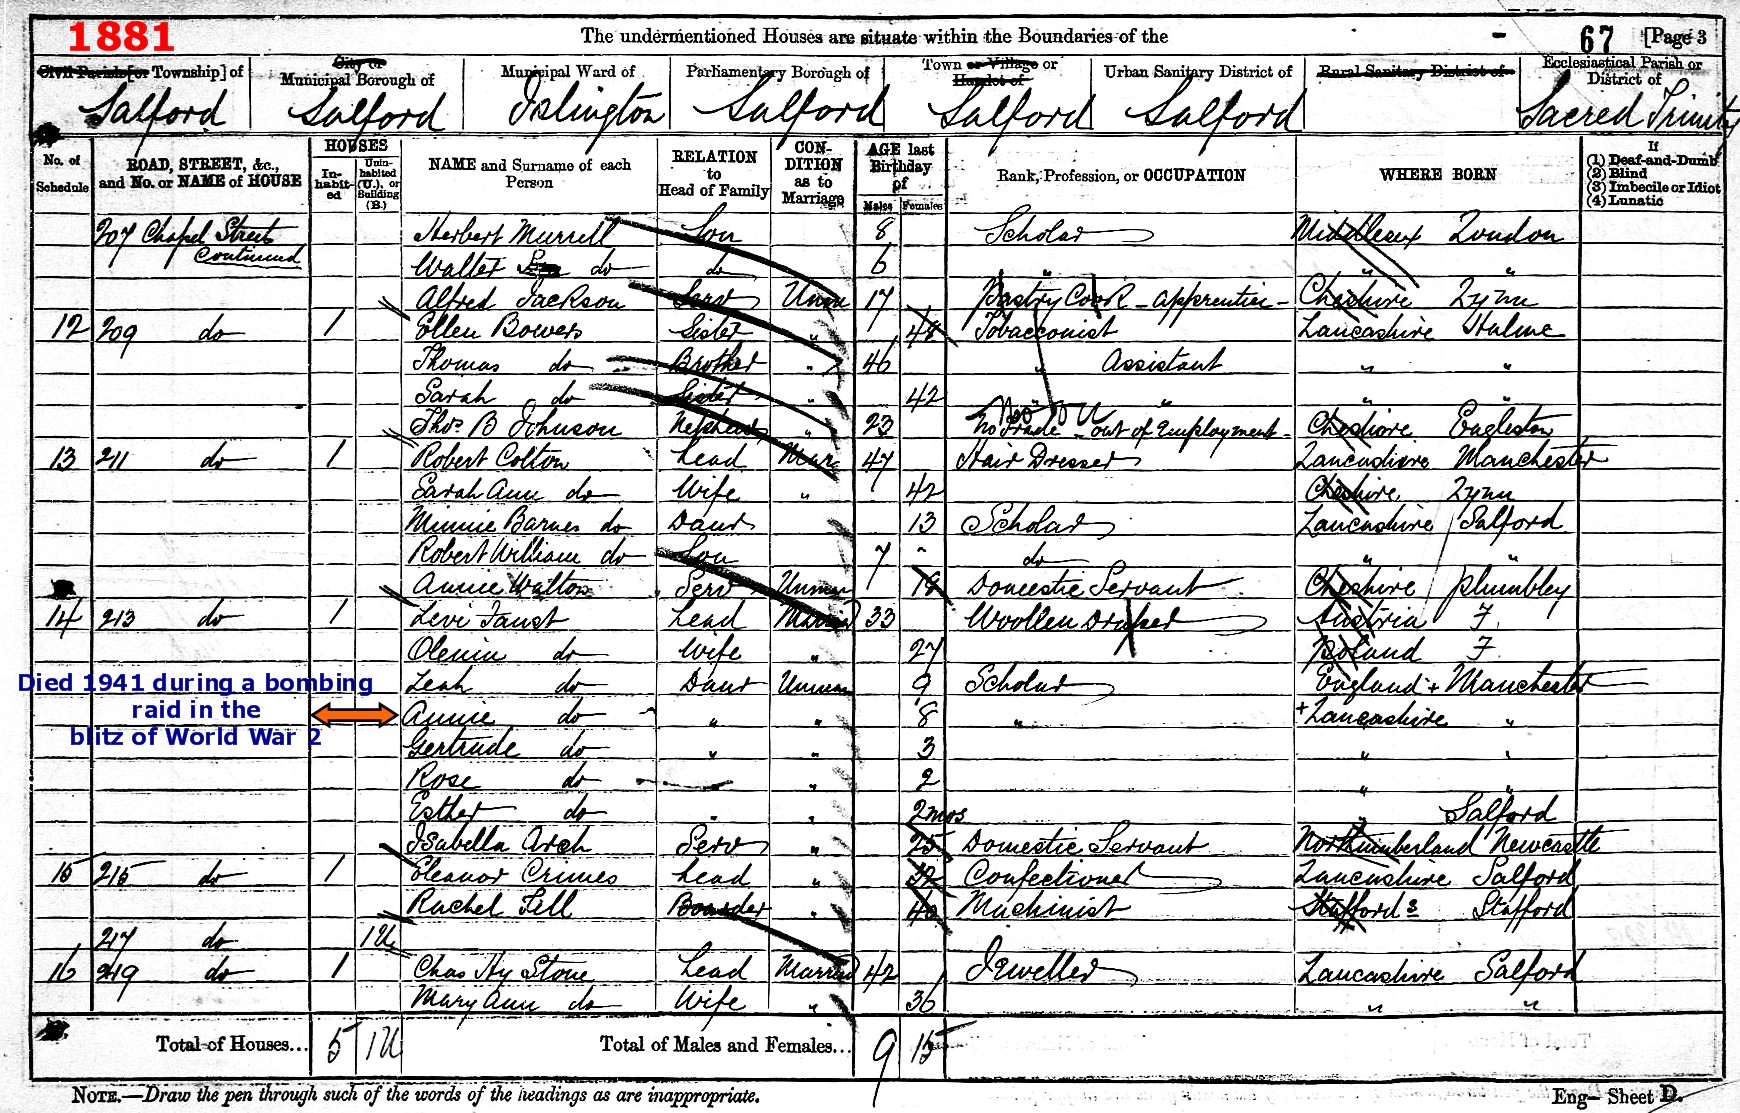 1881
The undermentioned Houses are situate within the Boundaries of the
67 [Page 3
Civil Parish [or Township] of
City or Municipal Borough of
Municipal Ward of
Parliamentary Borough of
Town or Village or Hamlet of
Urban Sanitary District of
Rural Sanitary District of
Ecclesiastical Parish or District of
Salford Salford Islington Salford Salford Salford Sacred Trinity
No. of Schedule
ROAD, STREET, &c., and No. or NAME of HOUSE
HOUSES
In-habit-ed
Unin-habited (U.), or Building (B.)
NAME and Surname of each Person
RELATION to Head of Family
CON-DITION as to Marriage
AGE last Birthday of
Males Females
Rank, Profession, or OCCUPATION
WHERE BORN
If
(1) Deaf-and-Dumb
(2) Blind
(3) Imbecile or Idiot
(4) Lunatic
207 Chapel Street Continued Herbert Murrell Son 8 Scholar Middlesex London
Walter do do 6 " "
Alfred Jackson Serv Unm 17 Pastry Cook - apprentice - Cheshire Lymm
12 209 do 1 Ellen Bowers Sister " 48 Tobacconist Lancashire Hulme
Thomas do Brother " 46 " Assistant " "
Sarah do Sister " 42 " " " "
Thos B Johnson Nephew " 23 No Trade - out of Employment - Cheshire
13 211 do 1 Robert Colton Head Mar 47 Hair Dresser Lancashire Manchester
Sarah Ann do Wife " 42 Cheshire Lymm
Minnie Barnes do Daur 13 Scholar Lancashire Salford
Robert William do Son 7 do " "
Annie Walton Serv Unmar 19 Domestic Servant Cheshire Plumbley
14 213 do 1 Levi Faust Head Married 33 Woollen Draper Austria F
do Wife " 27 Poland F
Leah do Daur Unmar 9 Scholar England + Manchester
Died 1941 during a bombing
raid in the
blitz of World War 2
Annie do " " 8 " + Lancashire "
Gertrude do " " 3 " "
Rose do " " 2 " "
Esther do " " 2 mos " Salford
Isabella Arch Serv " 25 Domestic Servant Northumberland Newcastle
15 215 do 1 Eleanor Crimes Head " 32 Confectioner Lancashire Salford
Rachel Boarder " 40 Machinist Stafford
217 do 1U
16 219 do 1 Chas Hy Stone Head Married 42 Jeweller Lancashire Salford
Mary Ann do Wife " 36 " "
Total of Houses... 5 1U Total of Males and Females... 9 15
NOTE.—Draw the pen through such of the words of the headings as are inappropriate.
Eng— Sheet D.